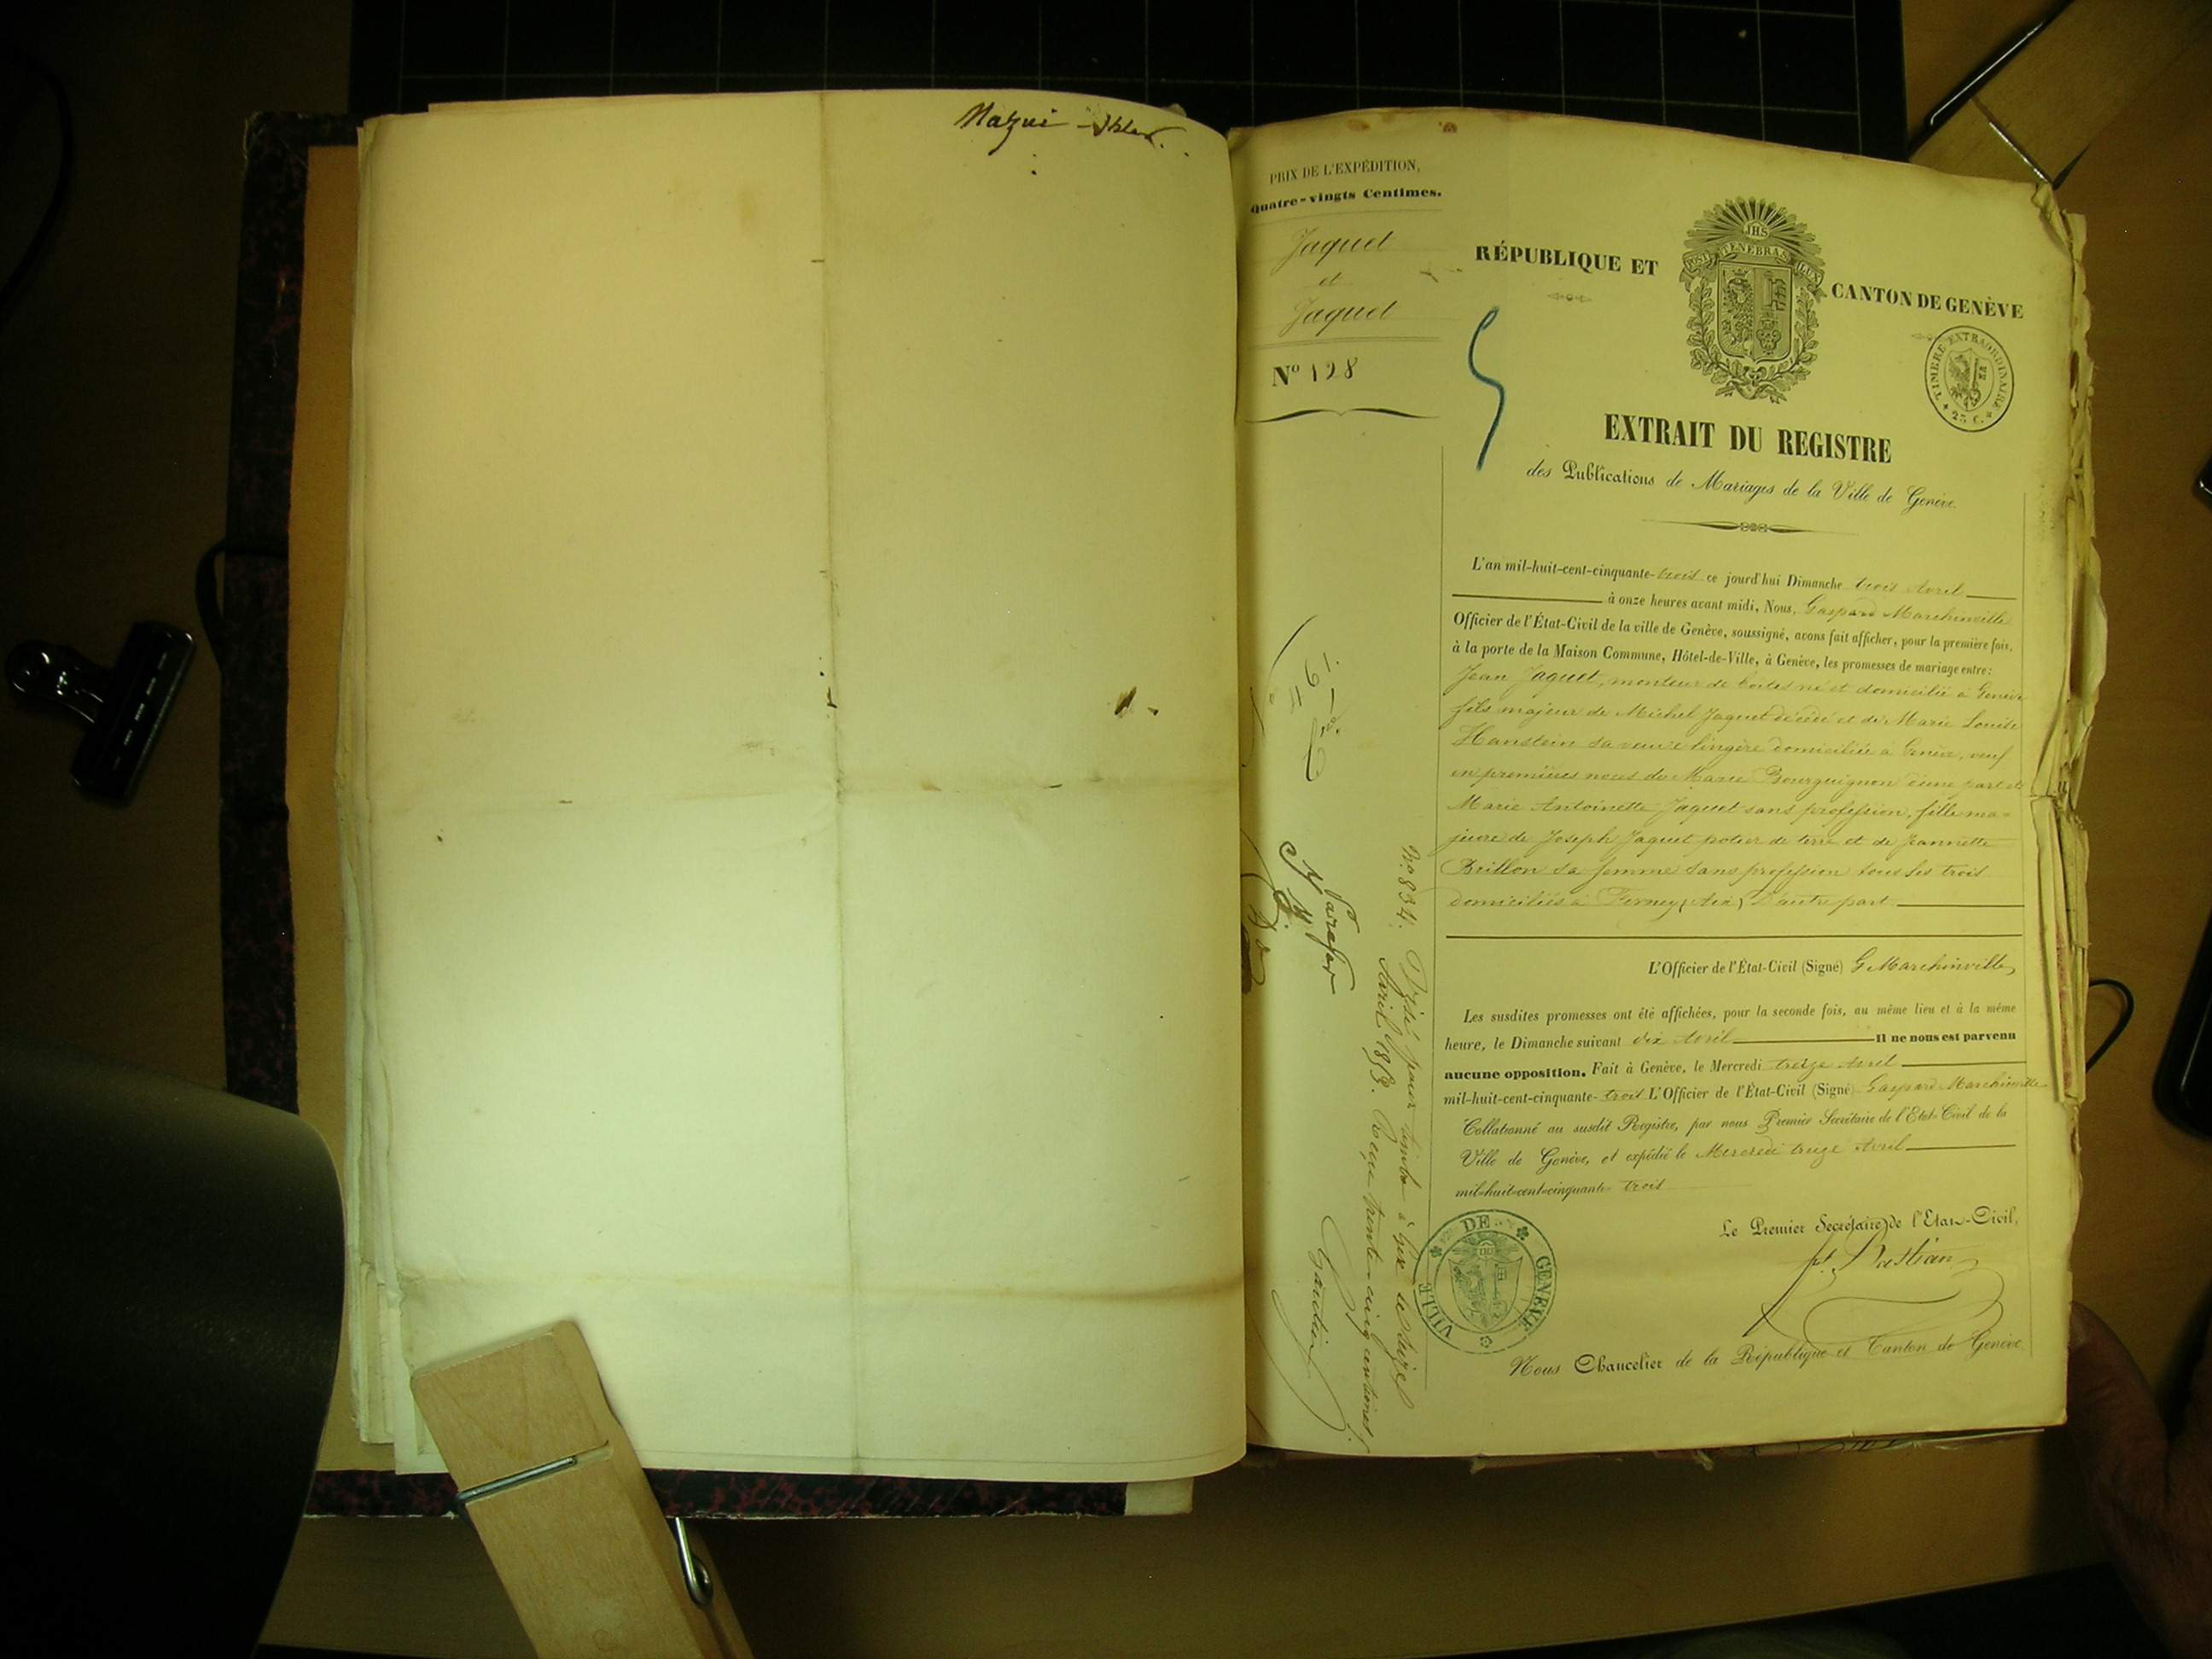 PRIX DE L'EXPÉDITION,
Quatre-vingts Centimes.
Jaquet
et
Jaquet
Nº 128
RÉPUBLIQUE ET
CANTON DE GENÈVE
JHS
POST TENEBRAS LUX
TIMBRE EXTRAORDINAIRE
25 C.
EXTRAIT DU REGISTRE
des Publications de Mariages de la Ville de Genève.
L'an mil-huit-cent-cinquante-trois ce jourd'hui Dimanche trois Avril
à onze heures avant midi, Nous, Gaspard Marchinville
Officier de l'État-Civil de la ville de Genève, soussigné, avons fait afficher, pour la première fois,
à la porte de la Maison Commune, Hôtel-de-Ville, à Genève, les promesses de mariage entre:
Jean Jaquet, monteur de boites né et domicilié à Genève
fils majeur de Michel Jaquet décédé et de Marie Louise
Hanstein sa veuve lingère domiciliée à Genève, veuf
en premières noces de Marie Bourguignon d'une part et
Marie Antoinette Jaquet sans profession, fille ma-
jeure de Joseph Jaquet potier de terre et de Jeannette
Brillon sa femme sans profession tous les trois
domiciliés à Ferney (Ain) D'autre part.
L'Officier de l'État-Civil (Signé) G Marchinville
Les susdites promesses ont été affichées, pour la seconde fois, au même lieu et à la même
heure, le Dimanche suivant dix Avril Il ne nous est parvenu
aucune opposition. Fait à Genève, le Mercredi treize Avril
mil-huit-cent-cinquante-trois L'Officier de l'État-Civil (Signé) Gaspard Marchinville
Collationné au susdit Registre, par nous Premier Secrétaire de l'Etat-Civil de la
Ville de Genève, et expédié le Mercredi treize Avril
mil-huit-cent-cinquante-trois
Le Premier Secrétaire de l'Etat-Civil,
Bastian
VILLE DE GENÈVE
Nous Chancelier de la République et Canton de Genève
Nº 834. Visé pour timbre à Gex le
Avril 1853. Reçu trente cinq centimes